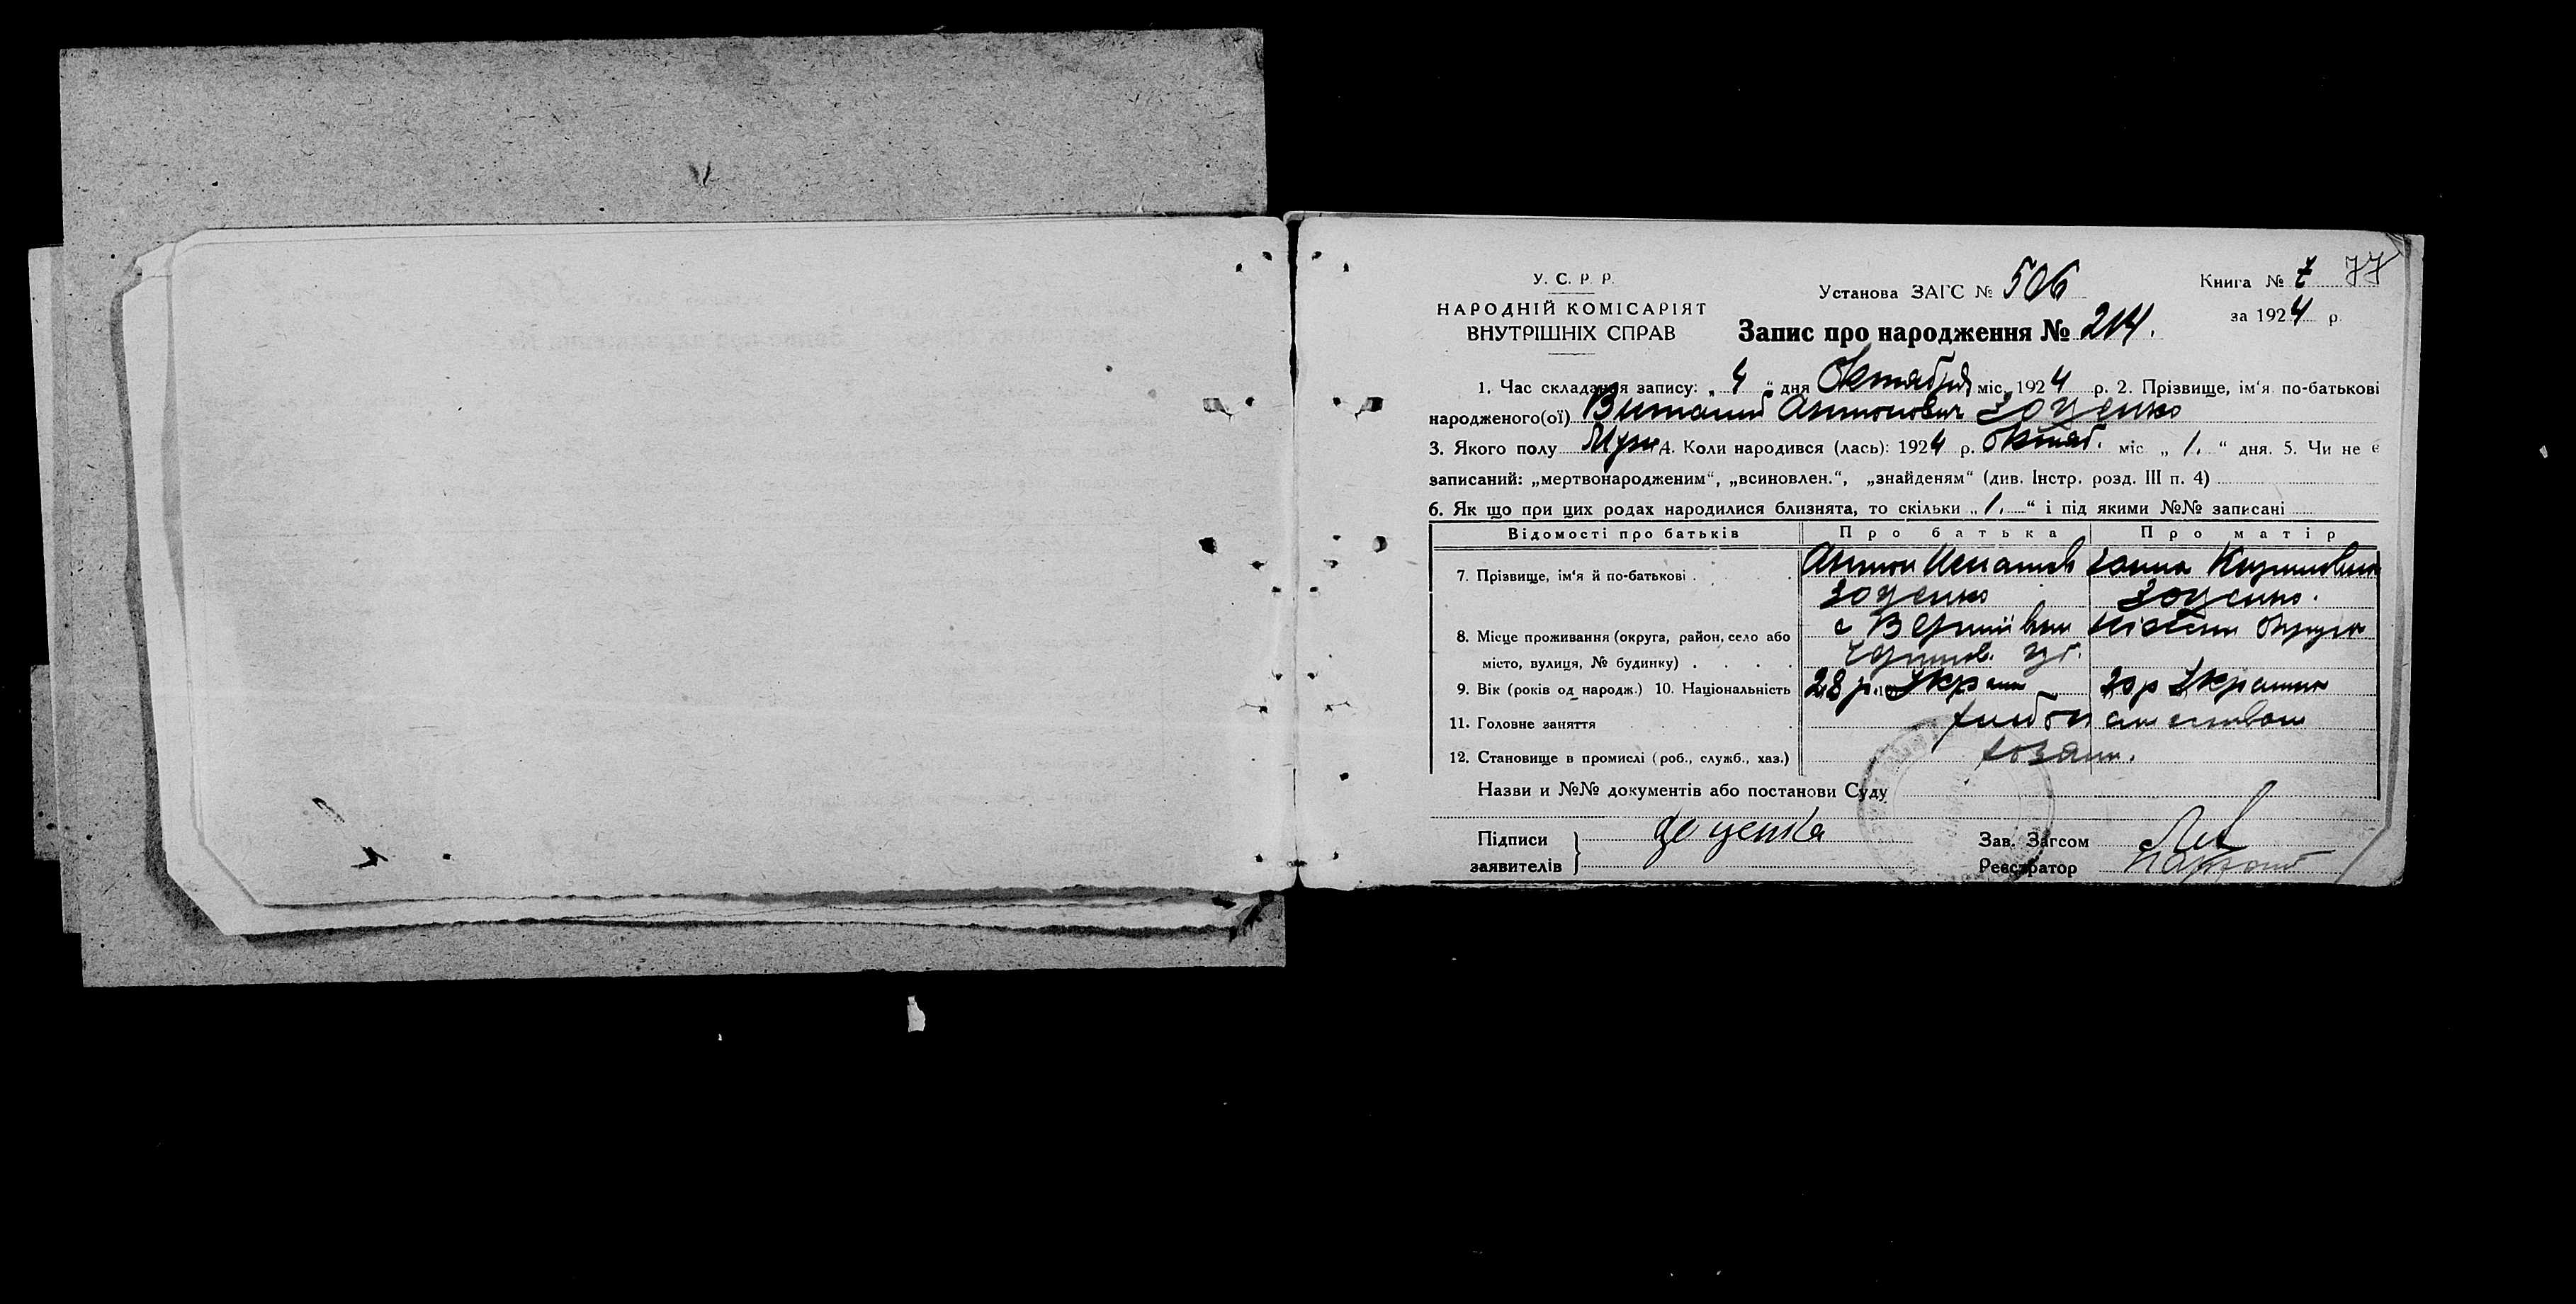 У. С. Р. Р.
НАРОДНІЙ КОМІСАРІЯТ
ВНУТРІШНІХ СПРАВ
Установа ЗАГС № 506
Запис про народження № 214.
Книга № 7 77
за 1924 р.
1. Час складання запису: „ 4 “ дня Октября міс. 1924 р. 2. Прізвище, ім'я по-батькові
народженого(ої) Виталий Антонович Зоценко
3. Якого полу Муж 4. Коли народився (лась): 1924 р. Октяб. міс „ 1. “ дня. 5. Чи не є
записаний: „мертвонародженим“, „всиновлен.“, „знайденям“ (див. Інстр. розд. III п. 4)
6. Як що при цих родах народилися близнята, то скільки „ 1. “ і під якими №№ записані
Відомості про батьків Про батька Про матір
7. Прізвище, ім'я й по-батькові Антон Игнатов Ганна
Зоценко Зоценко.
8. Місце проживання (округа, район, село або с округи
місто, вулиця, № будинку) губ.
9. Вік (років од народж.) 10. Національність 28 р. Украин 20 р Украинка
11. Головне заняття
12. Становище в промислі (роб., служб., хаз.) хозяин.
Назви и №№ документів або постанови Суду
Підписи
заявителів
Зав. Загсом
Реєстратор